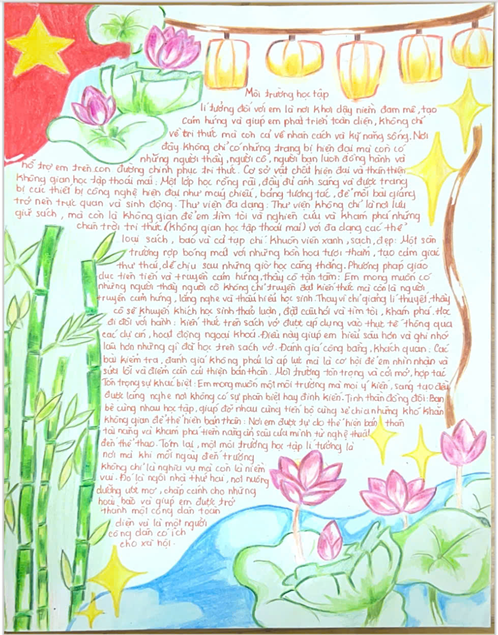 Môi trường học tập
lí tưởng đối với em là nơi khơi dậy niềm đam mê, tạo
cảm hứng và giúp em phát triển toàn diện, không chỉ
về tri thức mà còn cả về nhân cách và kỹ năng sống. Nơi
đây không chỉ có những trang bị hiện đại mà còn có
những người thầy, người cô, người bạn luôn đồng hành và
hỗ trợ em trên con đường chinh phục tri thức. Cơ sở vật chất hiện đại và thân thiện
Không gian học tập thoải mái: Một lớp học rộng rãi, đầy đủ ánh sáng và được trang
bị các thiết bị công nghệ hiện đại như máy chiếu, bảng tương tác, để mỗi bài giảng
trở nên trực quan và sinh động. Thư viện đa dạng: Thư viện không chỉ là nơi lưu
giữ sách, mà còn là không gian để em tìm tòi và nghiên cứu và khám phá những
chân trời tri thức (không gian học tập thoải mái) với đa dạng các thể
loại sách, báo và cả tạp chí. Khuôn viên xanh, sạch, đẹp: Một sân
trường rợp bóng mát với những bồn hoa tươi thắm, tạo cảm giác
thư thái, dễ chịu sau những giờ học căng thẳng. Phương pháp giáo
dục tiên tiến và truyền cảm hứng, thầy cô tận tâm: Em mong muốn có
những người thầy người cô không chỉ truyền đạt kiến thức mà còn là người
truyền cảm hứng, lắng nghe và thấu hiểu học sinh. Thay vì chỉ giảng lí thuyết, thầy
cô sẽ khuyến khích học sinh thảo luận, đặt câu hỏi và tìm tòi, khám phá. Học
đi đôi với hành: kiến thức trên sách vở được áp dụng vào thực tế thông qua
các dự án, hoạt động ngoại khoá. Điều này giúp em hiểu sâu hơn và ghi nhớ
lâu hơn những gì đã học trên sách vở. Đánh giá công bằng, khách quan: Các
bài kiểm tra, đánh giá không phải là áp lực mà là cơ hội để em nhìn nhận và
sửa lỗi và điểm cần cải thiện bản thân. Môi trường tôn trọng và cởi mở, hợp tác
Tôn trọng sự khác biệt: Em mong muốn một môi trường mà mọi ý kiến, sáng tạo đều
được lắng nghe nơi không có sự phân biệt hay định kiến. Tinh thần đồng đội: Bạn
bè cùng nhau học tập, giúp đỡ nhau cùng tiến bộ cùng sẻ chia những khó khăn
không gian để thể hiện bản thân: Nơi em được tự do thể hiện bản thân
tài năng và khám phá tiềm năng ẩn sâu của mình từ nghệ thuật
đến thể thao. Tóm lại, một môi trường học tập lí tưởng là
nơi mà khi mỗi ngày đến trường
không chỉ là nghĩa vụ mà còn là niềm
vui. Đó là ngôi nhà thứ hai, nơi nuôi
dưỡng ước mơ, chắp cánh cho những
hoài bão và giúp em được trở
thành một công dân toàn
diện và là một người
công dân có ích
cho xã hội.